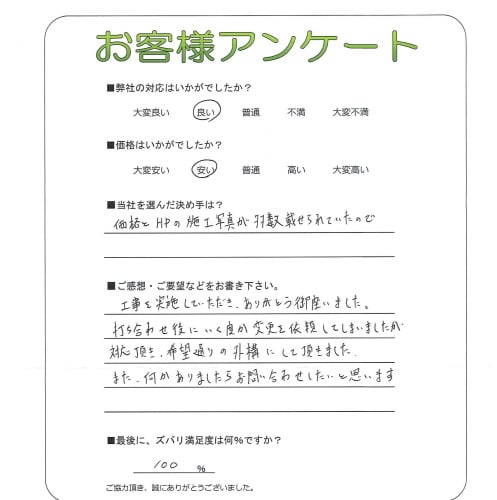 お客様アンケート
■弊社の対応はいかがでしたか？
大変良い 良い 普通 不満 大変不満
■価格はいかがでしたか？
大変安い 安い 普通 高い 大変高い
■当社を選んだ決め手は？
価格と HPの施工写真が多数載せられていたので
■ご感想・ご要望などをお書き下さい。
工事を実施していただき、ありがとう御座いました。
打ち合わせ後にいく度か変更を依頼してしまいましたが
対応頂き、希望通りの外構にして頂きました。
また、何かありましたらお問い合わせしたいと思います
■最後に、ズバリ満足度は何%ですか？
100 %
ご協力頂き、誠にありがとうございました。